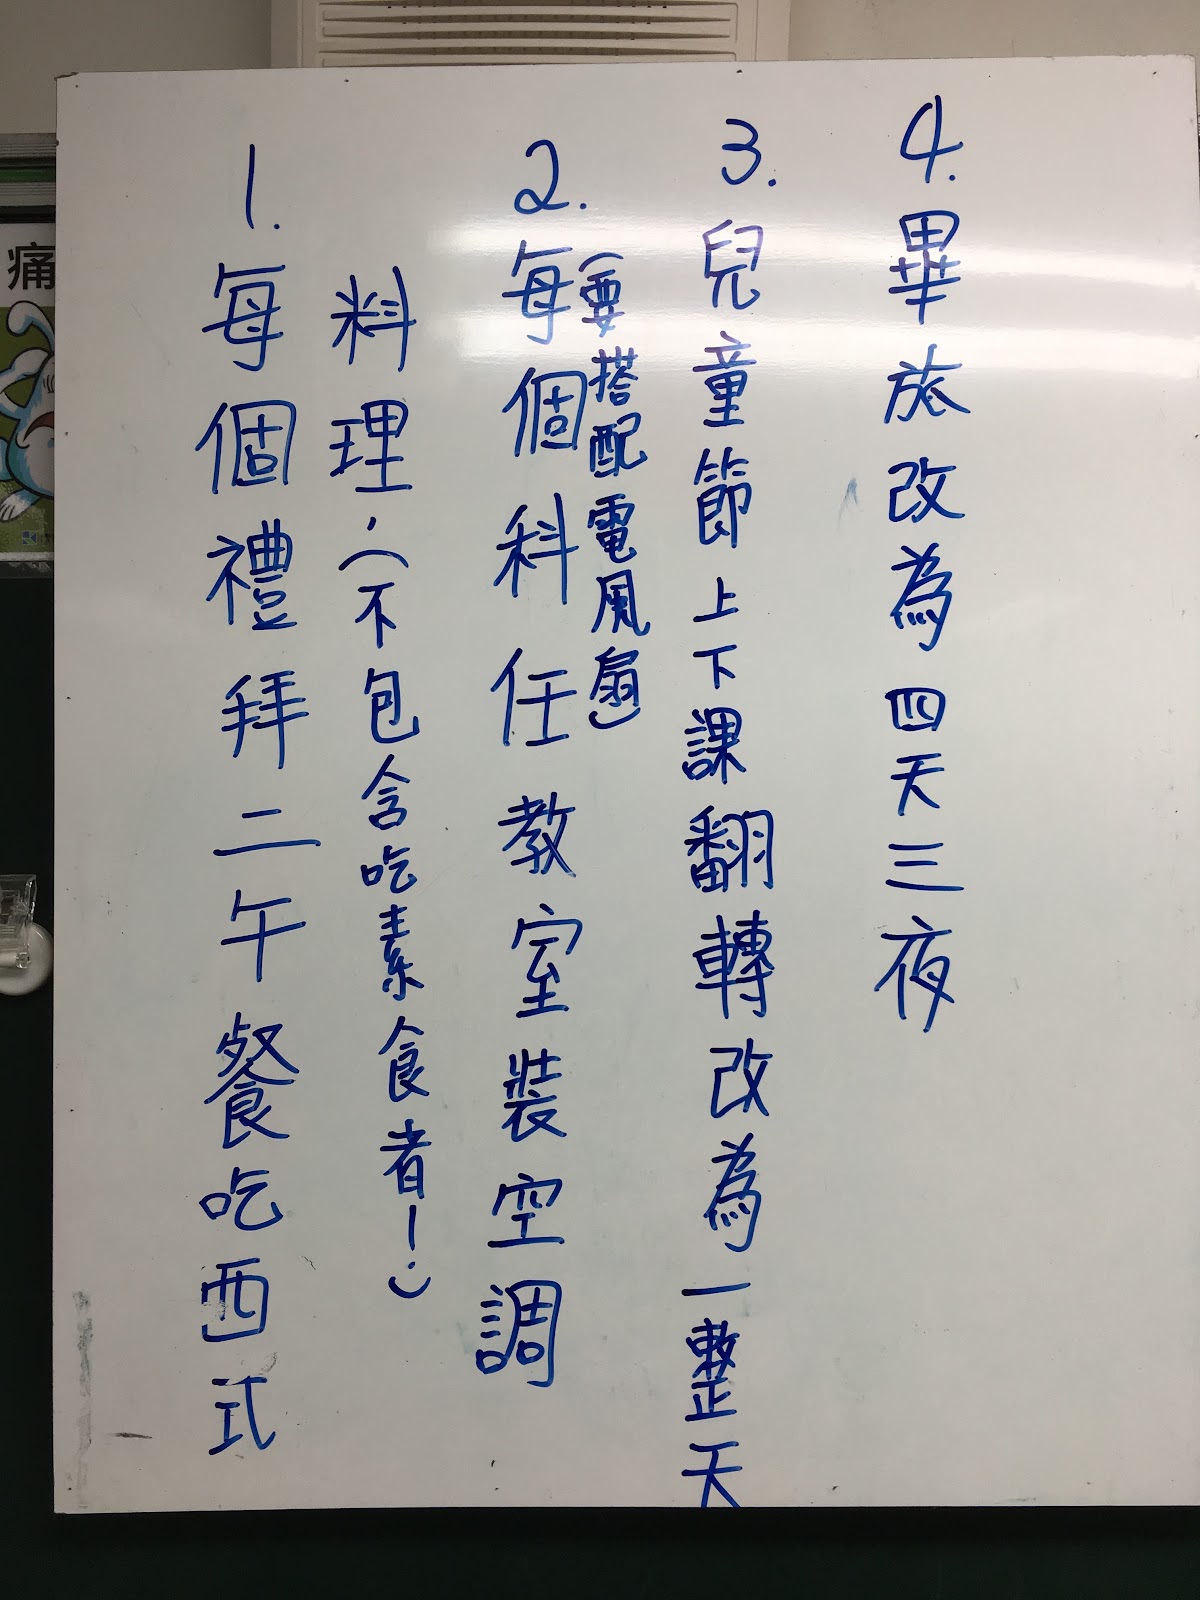 1.每個禮拜二午餐吃西式
料理，(不包含吃素食者！)
2.每個科任教室裝空調
(要搭配電風扇)
3.兒童節上下課翻轉改為一整天
4.畢旅改為四天三夜
痛